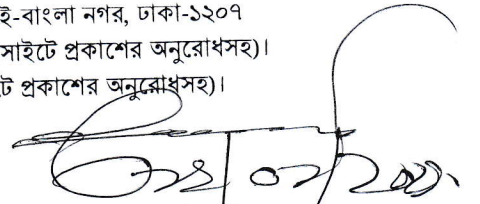 ই-বাংলা নগর, ঢাকা-১২০৭
সাইটে প্রকাশের অনুরোধসহ)।
ট প্রকাশের অনুরোধসহ)।